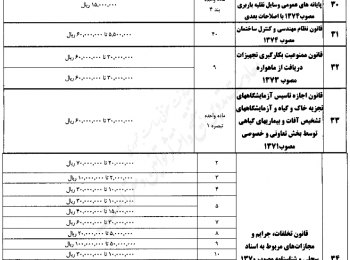 ۳۰
پایانه های عمومی وسایل نقلیه باربری
مصوب ۱۳۷۴ با اصلاحات بعدی
بند ۴
۱۵,۰۰۰,۰۰۰ ریال
۳۱
قانون نظام مهندسی و کنترل ساختمان
مصوب ۱۳۷۴
۴۰
۵,۵۰۰,۰۰۰ تا ۶۰,۰۰۰,۰۰۰ ریال
۳۲
قانون ممنوعیت بکارگیری تجهیزات
دریافت از ماهواره
مصوب ۱۳۷۳
۹
۳۰,۰۰۰,۰۰۰ تا ۶۰,۰۰۰,۰۰۰ ریال
۳۳
قانون اجازه تاسیس آزمایشگاههای
تجزیه خاک و گیاه و آزمایشگاههای
تشخیص آفات و بیماریهای گیاهی
توسط بخش تعاونی و خصوصی
مصوب ۱۳۷۱
ماده واحده
تبصره ۱
۳۰,۰۰۰,۰۰۰ تا ۶۰,۰۰۰,۰۰۰ ریال
۳۴
قانون تخلفات، جرایم و
مجازات‌های مربوط به اسناد
۲
۲۰,۰۰۰,۰۰۰ تا ۷۰,۰۰۰,۰۰۰ ریال
۳
۲,۰۰۰,۰۰۰ تا ۱۰,۰۰۰,۰۰۰ ریال
۴
۱۰,۰۰۰,۰۰۰ تا ۳۰,۰۰۰,۰۰۰ ریال
۵
۱۰,۰۰۰,۰۰۰ تا ۳۰,۰۰۰,۰۰۰ ریال
۱۵,۰۰۰,۰۰۰ تا ۴۰,۰۰۰,۰۰۰ ریال
۷
۳۰,۰۰۰,۰۰۰ تا ۶۰,۰۰۰,۰۰۰ ریال
۸
۵,۰۰۰,۰۰۰ تا ۲۰,۰۰۰,۰۰۰ ریال
۹
۵۰,۰۰۰,۰۰۰ تا ۱۰۰,۰۰۰,۰۰۰ ریال
۱۰
۱۰,۰۰۰,۰۰۰ تا ۳۰,۰۰۰,۰۰۰ ریال